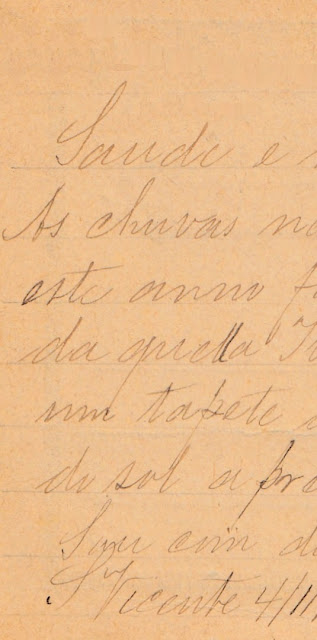 Saude e
As chuvas
este anno
da quella
um tapete
do sol a
Sou com
S Vicente 4/11